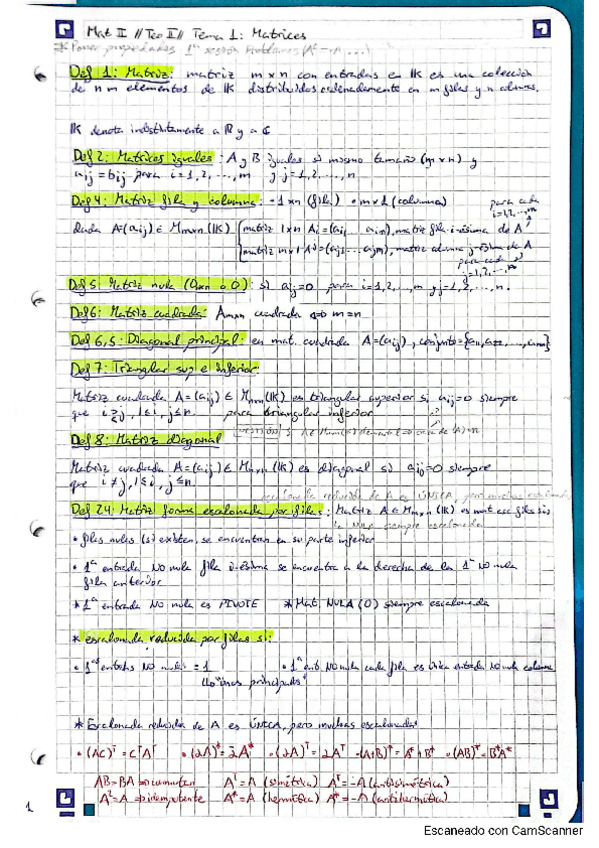 Mat II // Teo II // Tema 1: Matrices
* Poner propiedades 1ª sesión Problemas
Def 1: Matriz: matriz m x n con entradas en IK es una colección
de n m elementos de IK distribuidos ordenadamente en m filas y n columnas.
IK denota indistintamente a R y a C
Def 2: Matrices iguales: A y B iguales si mismo tamaño (m x n) y
aij = bij para i=1,2,...,m y j=1,2,...,n
Def 4: Matriz fila y columna: · 1 x n (fila) · m x 1 (columna)
para cada
i=1,2,...,m
Dada A=(aij) ∈ Mmxn (IK) matriz 1xn Ai=(ai1 ... ain), matriz fila i-ésima de A
matriz m x 1 Aj=(aj1 ... ajm), matriz columna j-ésima de A
para cada
j=1,2,...,n
Def 5: Matriz nula (Omxn o O): si aij=0 para i=1,2,...,m y j=1,2,...,n.
Def 6: Matriz cuadrada: Amxn cuadrada ⇔ m=n
Def 6,5: Diagonal principal: en mat. cuadrada A=(aij), conjunto={a11,a22,...,ann}
Def 7: Triangular sup e inferior:
Matriz cuadrada A=(aij) ∈ Mnxn(IK) es triangular superior si aij=0 siempre
que i>j, 1≤i, j≤n. para triangular inferior
Def 8: Matriz diagonal
Matriz cuadrada A=(aij) ∈ Mnxn (IK) es diagonal si aij=0 siempre
que i≠j, 1≤i, j≤n.
escalonada reducida de A es ÚNICA, pero muchas escalonadas
Def 24: Matriz forma escalonada por filas: Matriz A ∈ Mmxn (IK) es mat esc filas si:
la nula siempre escalonada
· filas nulas (si) existen, se encuentran en su parte inferior
· 1ª entrada NO nula fila i-ésima se encuentra a la derecha de la 1ª NO nula
fila anterior
* 1ª entrada NO nula es PIVOTE * Mat. NULA (O) siempre escalonada
* escalonada reducida por filas si:
· 1as entradas NO nulas = 1 · 1ª ent. NO nula cada fila es única entrada NO nula columna
"unos principales"
* Escalonada reducida de A es ÚNICA, pero muchas escalonadas
· (AC)ᵀ = CᵀAᵀ · (λA)* = λ̄A* · (λA)ᵀ = λAᵀ · (A+B)* = A*+B* · (AB)* = B*A*
AB=BA ⇒ conmutan Aᵀ=A (simétrica) Aᵀ=-A (antisimétrica)
A²=A ⇒ idempotente A*=A (hermítica) A*=-A (antihermítica)
1
Escaneado con CamScanner